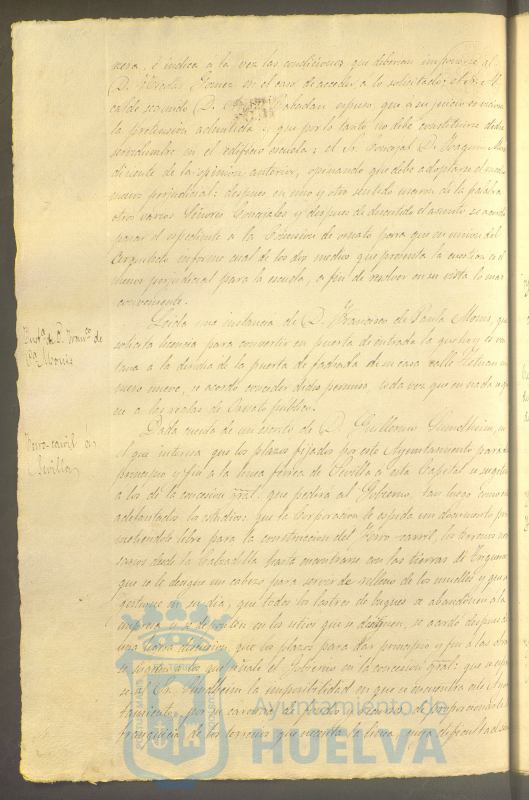 nera, é indica á la vez las condiciones que deberian imponerse al
D. Nicolas Gomez en el caso de acceder á lo solicitado; el Sr. Al
calde segundo D. Rabadan espuso, que á su juicio es inadmi
la pretension aducida y que por lo tanto no debe constituirse dicha
servidumbre en el edificio escuela: el Sr. Concejal D. Joaquin
de la opinion anterior, opinando que debe adoptarse el medio
menos perjudicial: despues en uno y otro sentido usaron de la palabra
otros varios Señores Concejales y despues de discutido el asunto se acordó
pasar el espediente á la Comision de ornato para que en union del
Arquitecto informe cual de los dos medios que presenta la cuestion es el
menos perjudicial para la escuela, á fin de resolver en su vista lo mas
conveniente.
Inst.ª de D. Fran.co de
P.ª Monis
Leida una instancia de D. Francisco de Paula Monis, que
solicita licencia para convertir en puerta de entrada la que hoy es ven
tana á la derecha de la puerta de fachada de su casa calle Tetuan nú
mero nueve, se acordó conceder dicho permiso, toda vez que en nada se opo
ne á las reglas de ornato público.
Ferro-carril á
Sevilla
Dada cuenta de un escrito de D. Guillermo Sundheim, en
el que interesa que los plazos fijados por este Ayuntamiento para dar
principio y fin á la linea férrea de Sevilla á esta Capital se sugeten
á los de la concesion gral. que pedirá al Gobierno, tan luego como esten
adelantados los estudios: que la Corporacion le espida un documento pro
metiendole libre para la construccion del ferro-carril, los terrenos ne
cesarios desde la Calzadilla hasta encontrarse con las tierras de
que se le designe un cabezo para servir de relleno de los muelles y que
gestione en su dia, que todos los lastres de buques se abandonen á la
empresa ó se depositen en los sitios que se designen, se acordó despues de
una discusion, que los plazos para dar principio y fin á las obras
se á los que señale el Gobierno en la concesion gral: que se espre
se al Sr. Sundheim la imposibilidad en que se encuentra este Ayun
tamiento, por su carencia de fondos y recursos, de proporcionarle la
franquicia de los terrenos que necesita la linea, cuya dificultad
Ayuntamiento de
HUELVA